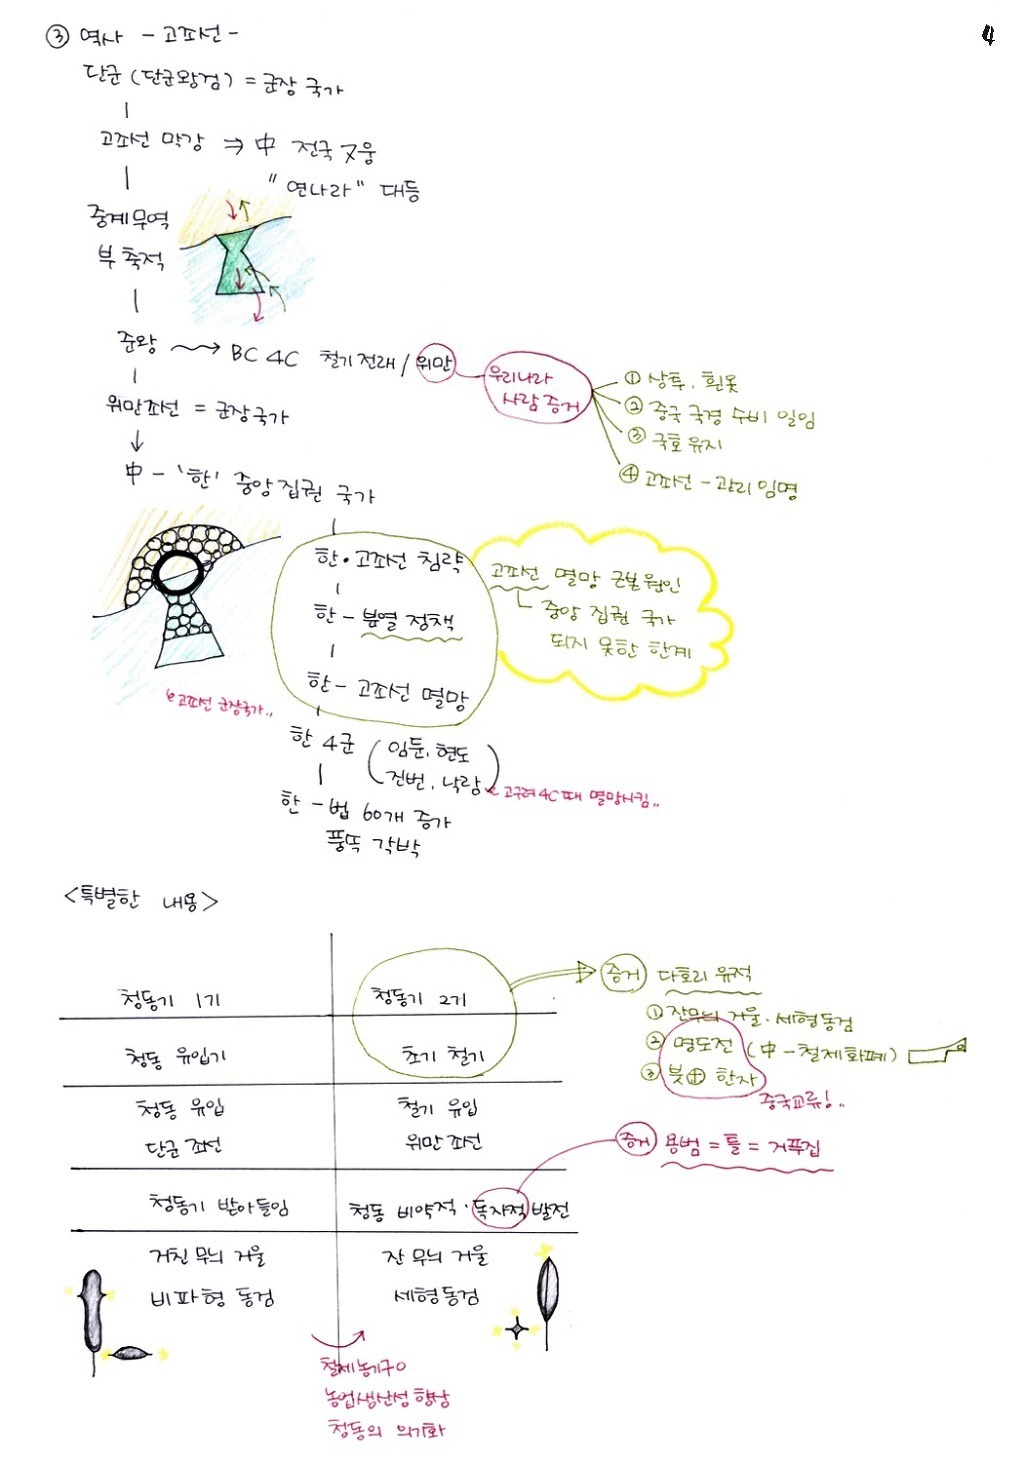 ③ 역사 - 고조선 -
4
단군 (단군왕검) = 군장 국가
고조선 막강 ⇒ 中 전국 7웅
"연나라" 대등
중계무역
부 축적
준왕 → BC 4C 철기 전래 / 위만
우리나라
사람 증거
① 상투, 흰옷
② 중국 국경 수비 일임
③ 국호 유지
④ 고조선 - 관리 임명
위만조선 = 군장국가
中 - '한' 중앙 집권 국가
한·고조선 침략
한 - 분열 정책
한 - 고조선 멸망
고조선 멸망 근본원인
중앙 집권 국가
되지 못한 한계
고조선 군장국가..
한 4군 (임둔, 현도
진번, 낙랑)
고구려 4C 때 멸망시킴..
한 - 법 60개 증가
풍뚝 각박
<특별한 내용>
청동기 1기
청동기 2기
증거 다호리 유적
① 잔무늬 거울·세형동검
② 명도전 (中 - 철제화폐)
③ 붓 ⊕ 한자
중국교류!..
청동 유입기
초기 철기
청동 유입
철기 유입
단군 조선
위만 조선
증거 용범 = 틀 = 거푸집
청동기 받아들임
청동 비약적·독자적 발전
거친 무늬 거울
잔 무늬 거울
비파형 동검
세형동검
철제농기구 O
농업생산성 향상
청동의 의기화